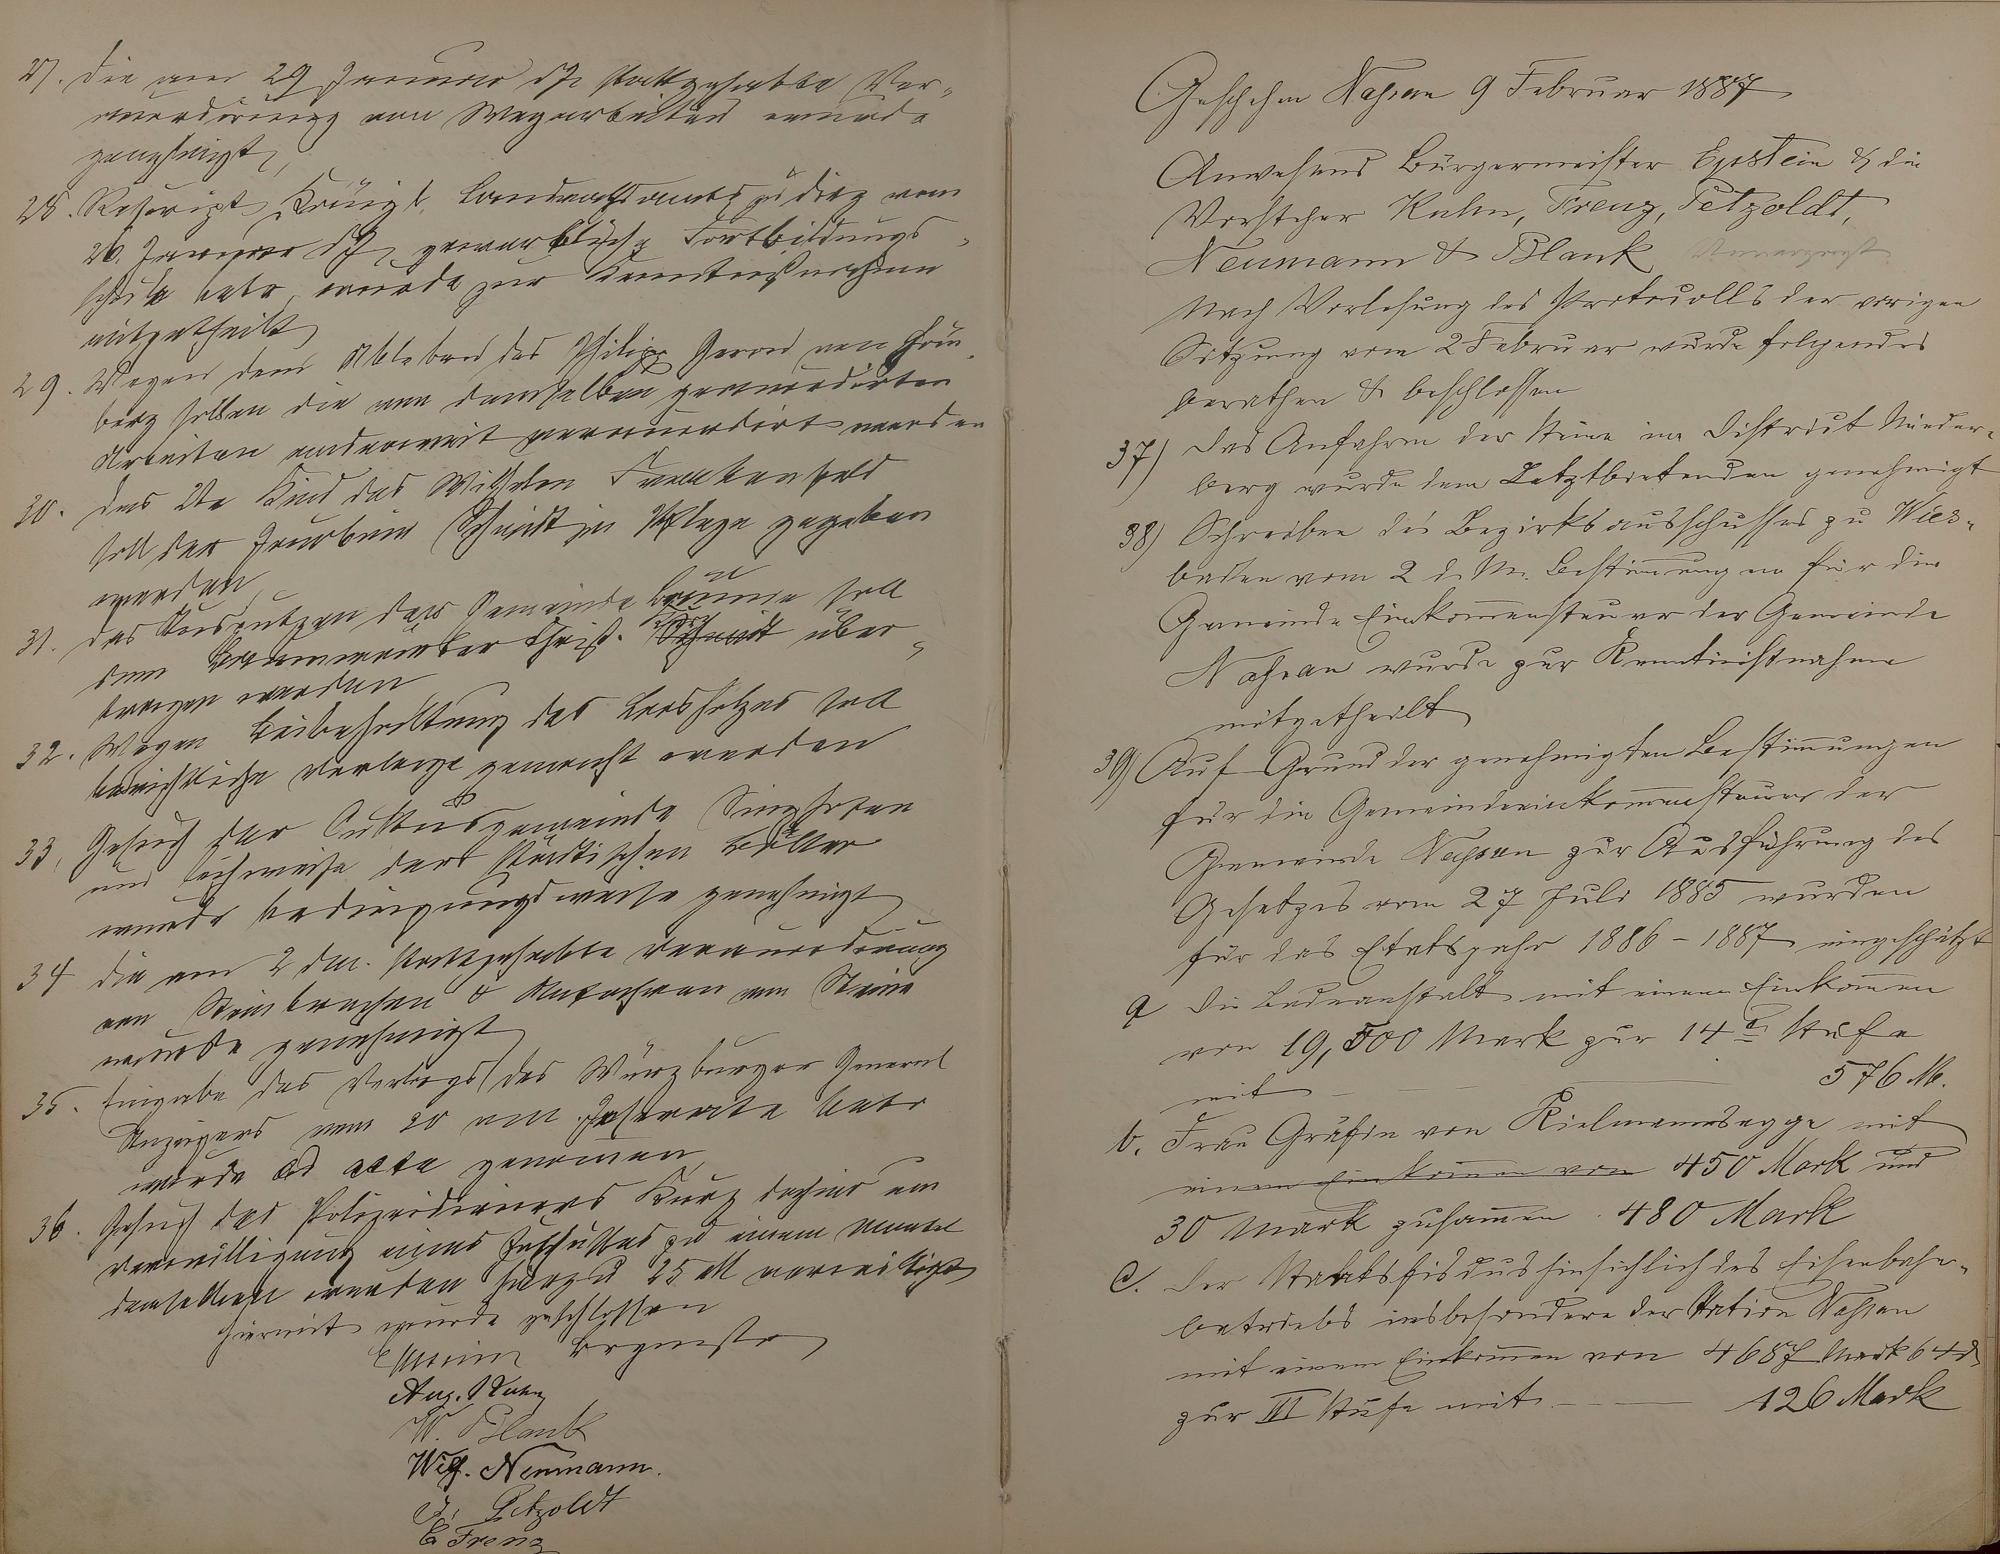 27. Die am 29 Januar d Js stattgehabte Ver-
accordirung von Wegarbeiten wurde
genehmigt
28. Rescript Königl. Landrathsamts zu Diez vom
26. Januar d Js gewerbliche Fortbildungs-
schule betr. wurde zur Kenntnißnahme
mitgetheilt
29. Wegen dem Ableben des Philipp
berg sollen die von demselben
Arbeiten anderweit veraccordirt werden
30. das 2te Kind des Wilhelm
soll der Schmidt in Pflege gegeben
werden
31. das Ausputzen der Gemeinde Bäume soll
dem Baumwärter Christ. Schmidt über-
tragen werden
32. Wegen Beibehaltung des Leseholzes soll
berichtliche Vorlage gemacht werden
33. Gesuch der Cultusgemeinde Singhofen
um leihweise der städtischen Böller
wurde bedingungsweise genehmigt
34 die am 2 d M. stattgehabte Veraccordirung
von Steinbrechen & Anfahren von Steine
wurde genehmigt
35. Eingabe des Verlags des Würzburger General
Anzeigers vom 20 v M. Inserate betr
wurde ad acta genommen
36. Gesuch des Polizeidieners Kurz dahier um
Verwilligung eines Zuschusses zu einem Mantel
demselben werden hierzu 25 M verwilligt
Hiermit wurde geschlossen
Epstein Brgmstr
Aug. Kuhn
W. Blank
Wilh. Neumann.
Petzoldt
C Frenz
Geschehen Nassau 9 Februar 1887
Anwesend Bürgermeister Epstein & die
Vorsteher Kuhn, Frenz, Petzoldt,
Neumann & Blank
Nach Vorlesung des Protocolls der vorigen
Sitzung vom 2 Februar wurde folgendes
berathen & beschlossen
37) Das Anfahren der Steine im District Nieder-
berg wurde dem Letztbietenden genehmigt
38) Schreiben des Bezirksausschusses zu Wies-
baden vom 2 d. M. Bestimmungen für die
Gemeinde Einkommensteuer der Gemeinde
Nassau wurde zur Kenntnißnahme
mitgetheilt
39) Auf Grund der genehmigten Bestimmungen
für die Gemeindeeinkommensteuer der
Gemeinde Nassau zur Ausführung des
Gesetzes vom 27 Juli 1885 wurden
für das Etatsjahr 1886 - 1887 eingeschätzt
a Die Badeanstalt mit einem Einkommen
von 19,500 Mark zur 14n Stufe
mit — — 576 M.
b. Frau Gräfin von Kielmannsegge mit
einem Einkommen von 450 Mark und
30 Mark zusammen 480 Mark
c. Der Staatsfiskus hinsichlich des Eisenbahn-
betriebs insbesondere der Station Nassau
mit einem Einkommen von 4687 Mark 64 d
zur VI Stufe mit — — 126 Mark